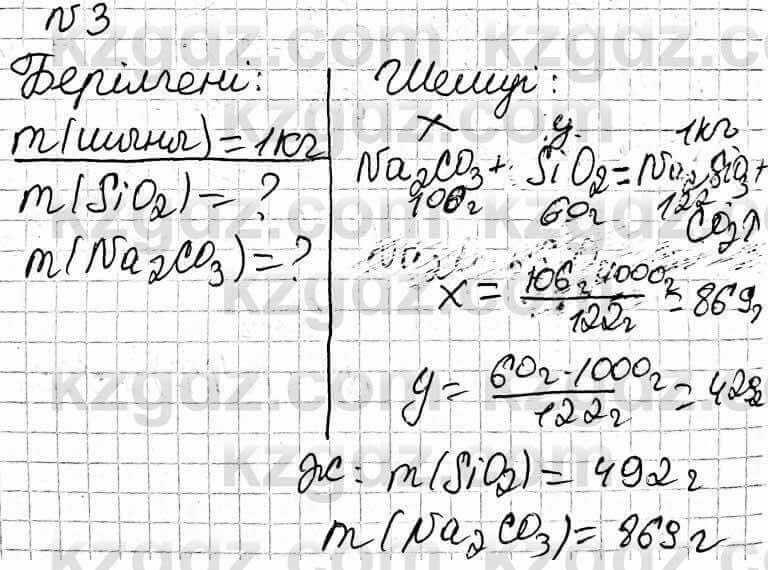 №3
Берілгені:
m(шыны)=1кг
m(SiO₂)=?
m(Na₂CO₃)=?
Шешуі:
x y 1кг
Na₂CO₃+ SiO₂=Na₂SiO₃+
106г 60г 122 CO₂↑
x = 106г·1000г / 122г = 869г
y = 60г·1000г / 122г = 492
Ж: m(SiO₂)=492г
m(Na₂CO₃)=869г
kzgdz.com